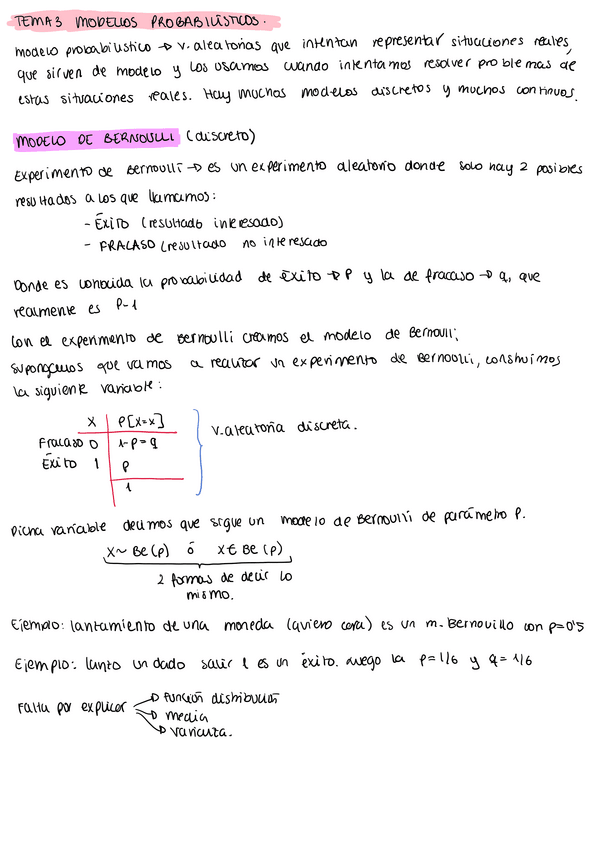 TEMA 3 MODELOS PROBABILÍSTICOS.
Modelo probabilístico → v. aleatorias que intentan representar situaciones reales,
que sirven de modelo y los usamos cuando intentamos resolver problemas de
estas situaciones reales. Hay muchos modelos discretos y muchos continuos.
MODELO DE BERNOULLI (discreto)
Experimento de Bernoulli → es un experimento aleatorio donde solo hay 2 posibles
resultados a los que llamamos:
- ÉXITO (resultado interesado)
- FRACASO (resultado no interesado
Donde es conocida la probabilidad de Éxito → P y la de fracaso → q, que
realmente es P-1
Con el experimento de Bernoulli creamos el modelo de Bernoulli;
supongamos que vamos a realizar un experimento de Bernoulli, construimos
la siguiente variable:
X P[X=x]
Fracaso 0 1-P=q
Éxito 1 P
1
v. aleatoria discreta.
Dicha variable decimos que sigue un modelo de Bernoulli de parámetro P.
X~ Be(p) ó X∈ Be(p)
2 formas de decir lo
mismo.
Ejemplo: lanzamiento de una moneda (quiero cara) es un m. Bernouillo con p=0'5
Ejemplo: lanzo un dado salir 1 es un éxito. luego la p=1/6 y q=1/6
Falta por explicar → función distribución
→ media
→ varianza.